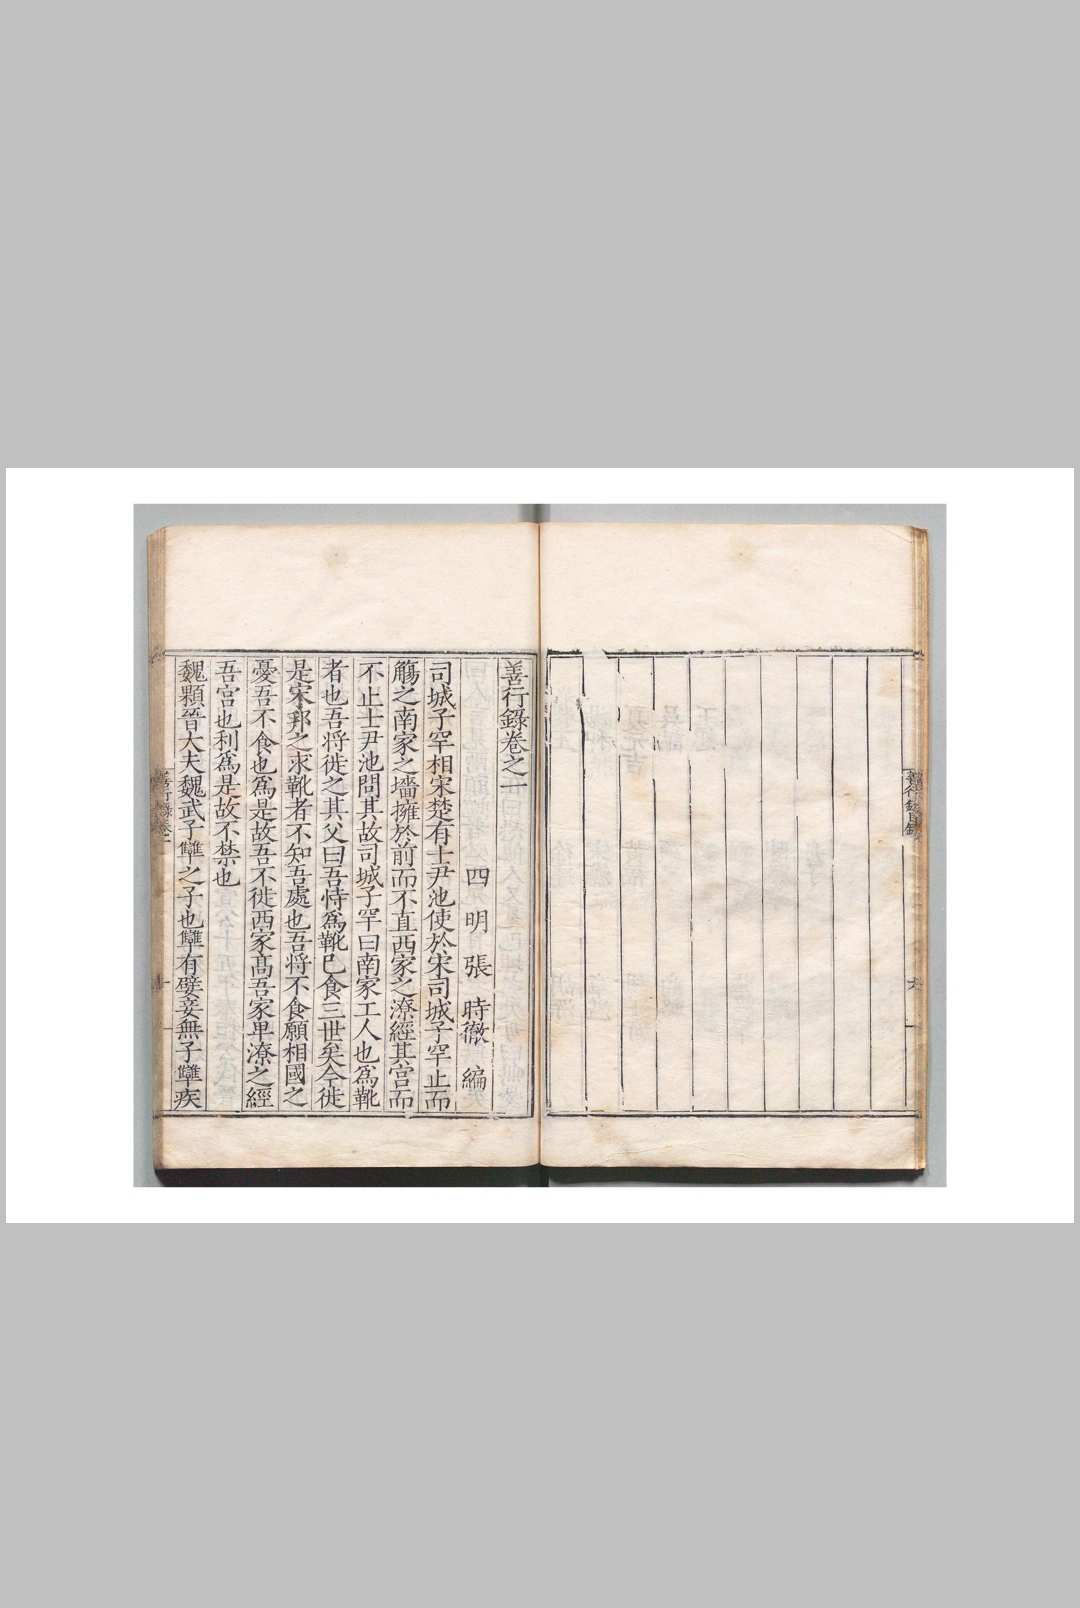 善行錄卷之一
四明張時徹編
司城子罕相宋楚有士尹池使於宋司城子罕止而
觴之南家之墻擁於前而不直西家之潦經其宫而
不止士尹池問其故司城子罕曰南家工人也爲靴
者也吾将徙之其父曰吾恃爲靴已食三世矣今徙
是宋邦之求靴者不知吾處也吾将不食願相國之
憂吾不食也爲是故吾不徙西家髙吾家卑潦之經
吾宫也利爲是故不禁也
魏顆晉大夫魏武子犨之子也犨有嬖妾無子犨疾
善行錄卷一
善行錄目錄